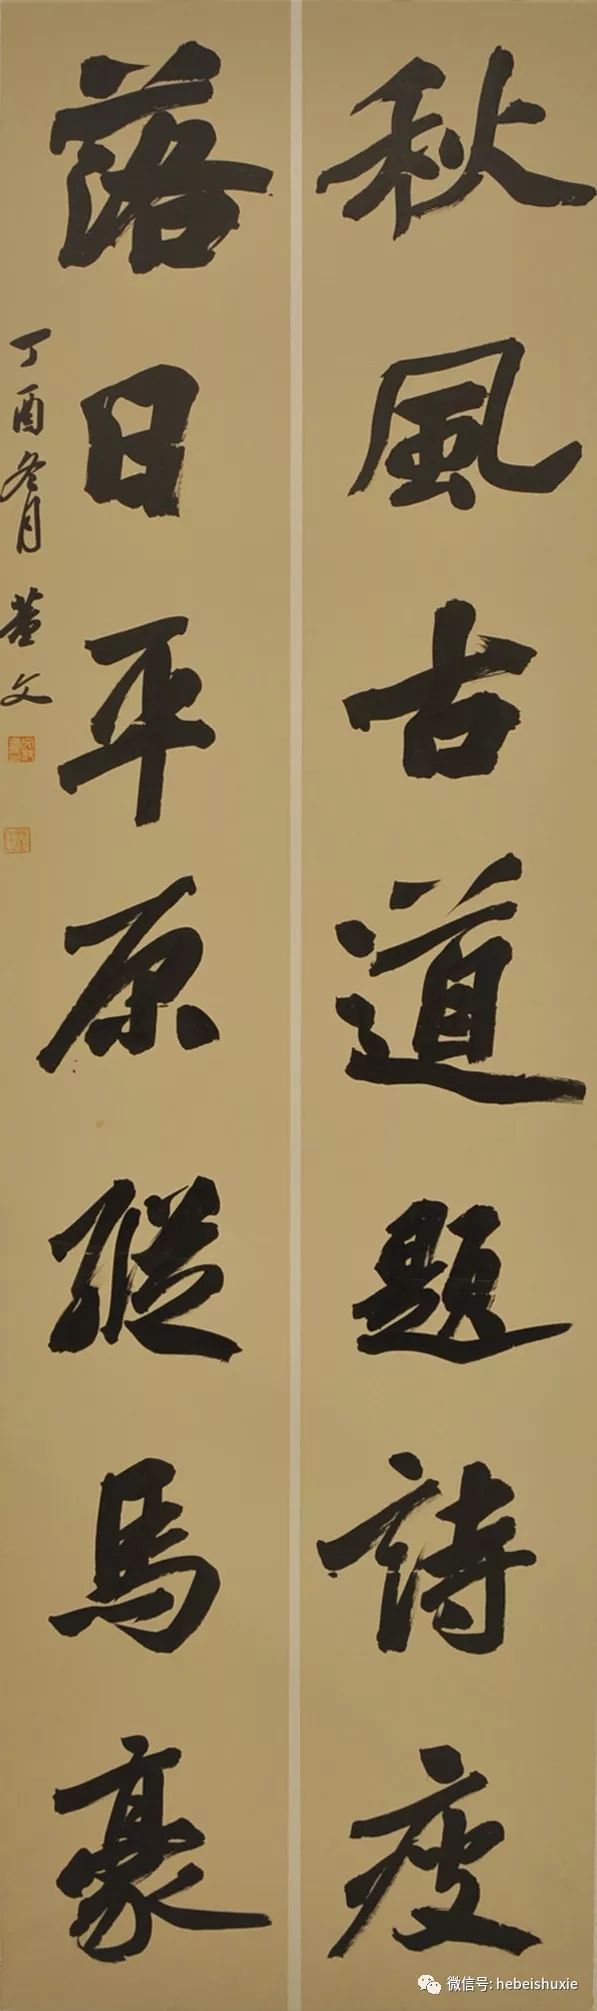 秋風古道題詩瘦
落日平原縱馬豪
丁酉冬月 董文
微信号: hebeishuxie